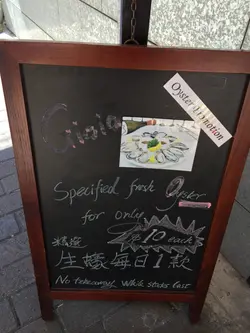 Oyster Promotion
Gioia
Specified fresh Oyster
for only
$10 each
精選
生蠔每日1款
No takeaway! While stocks last